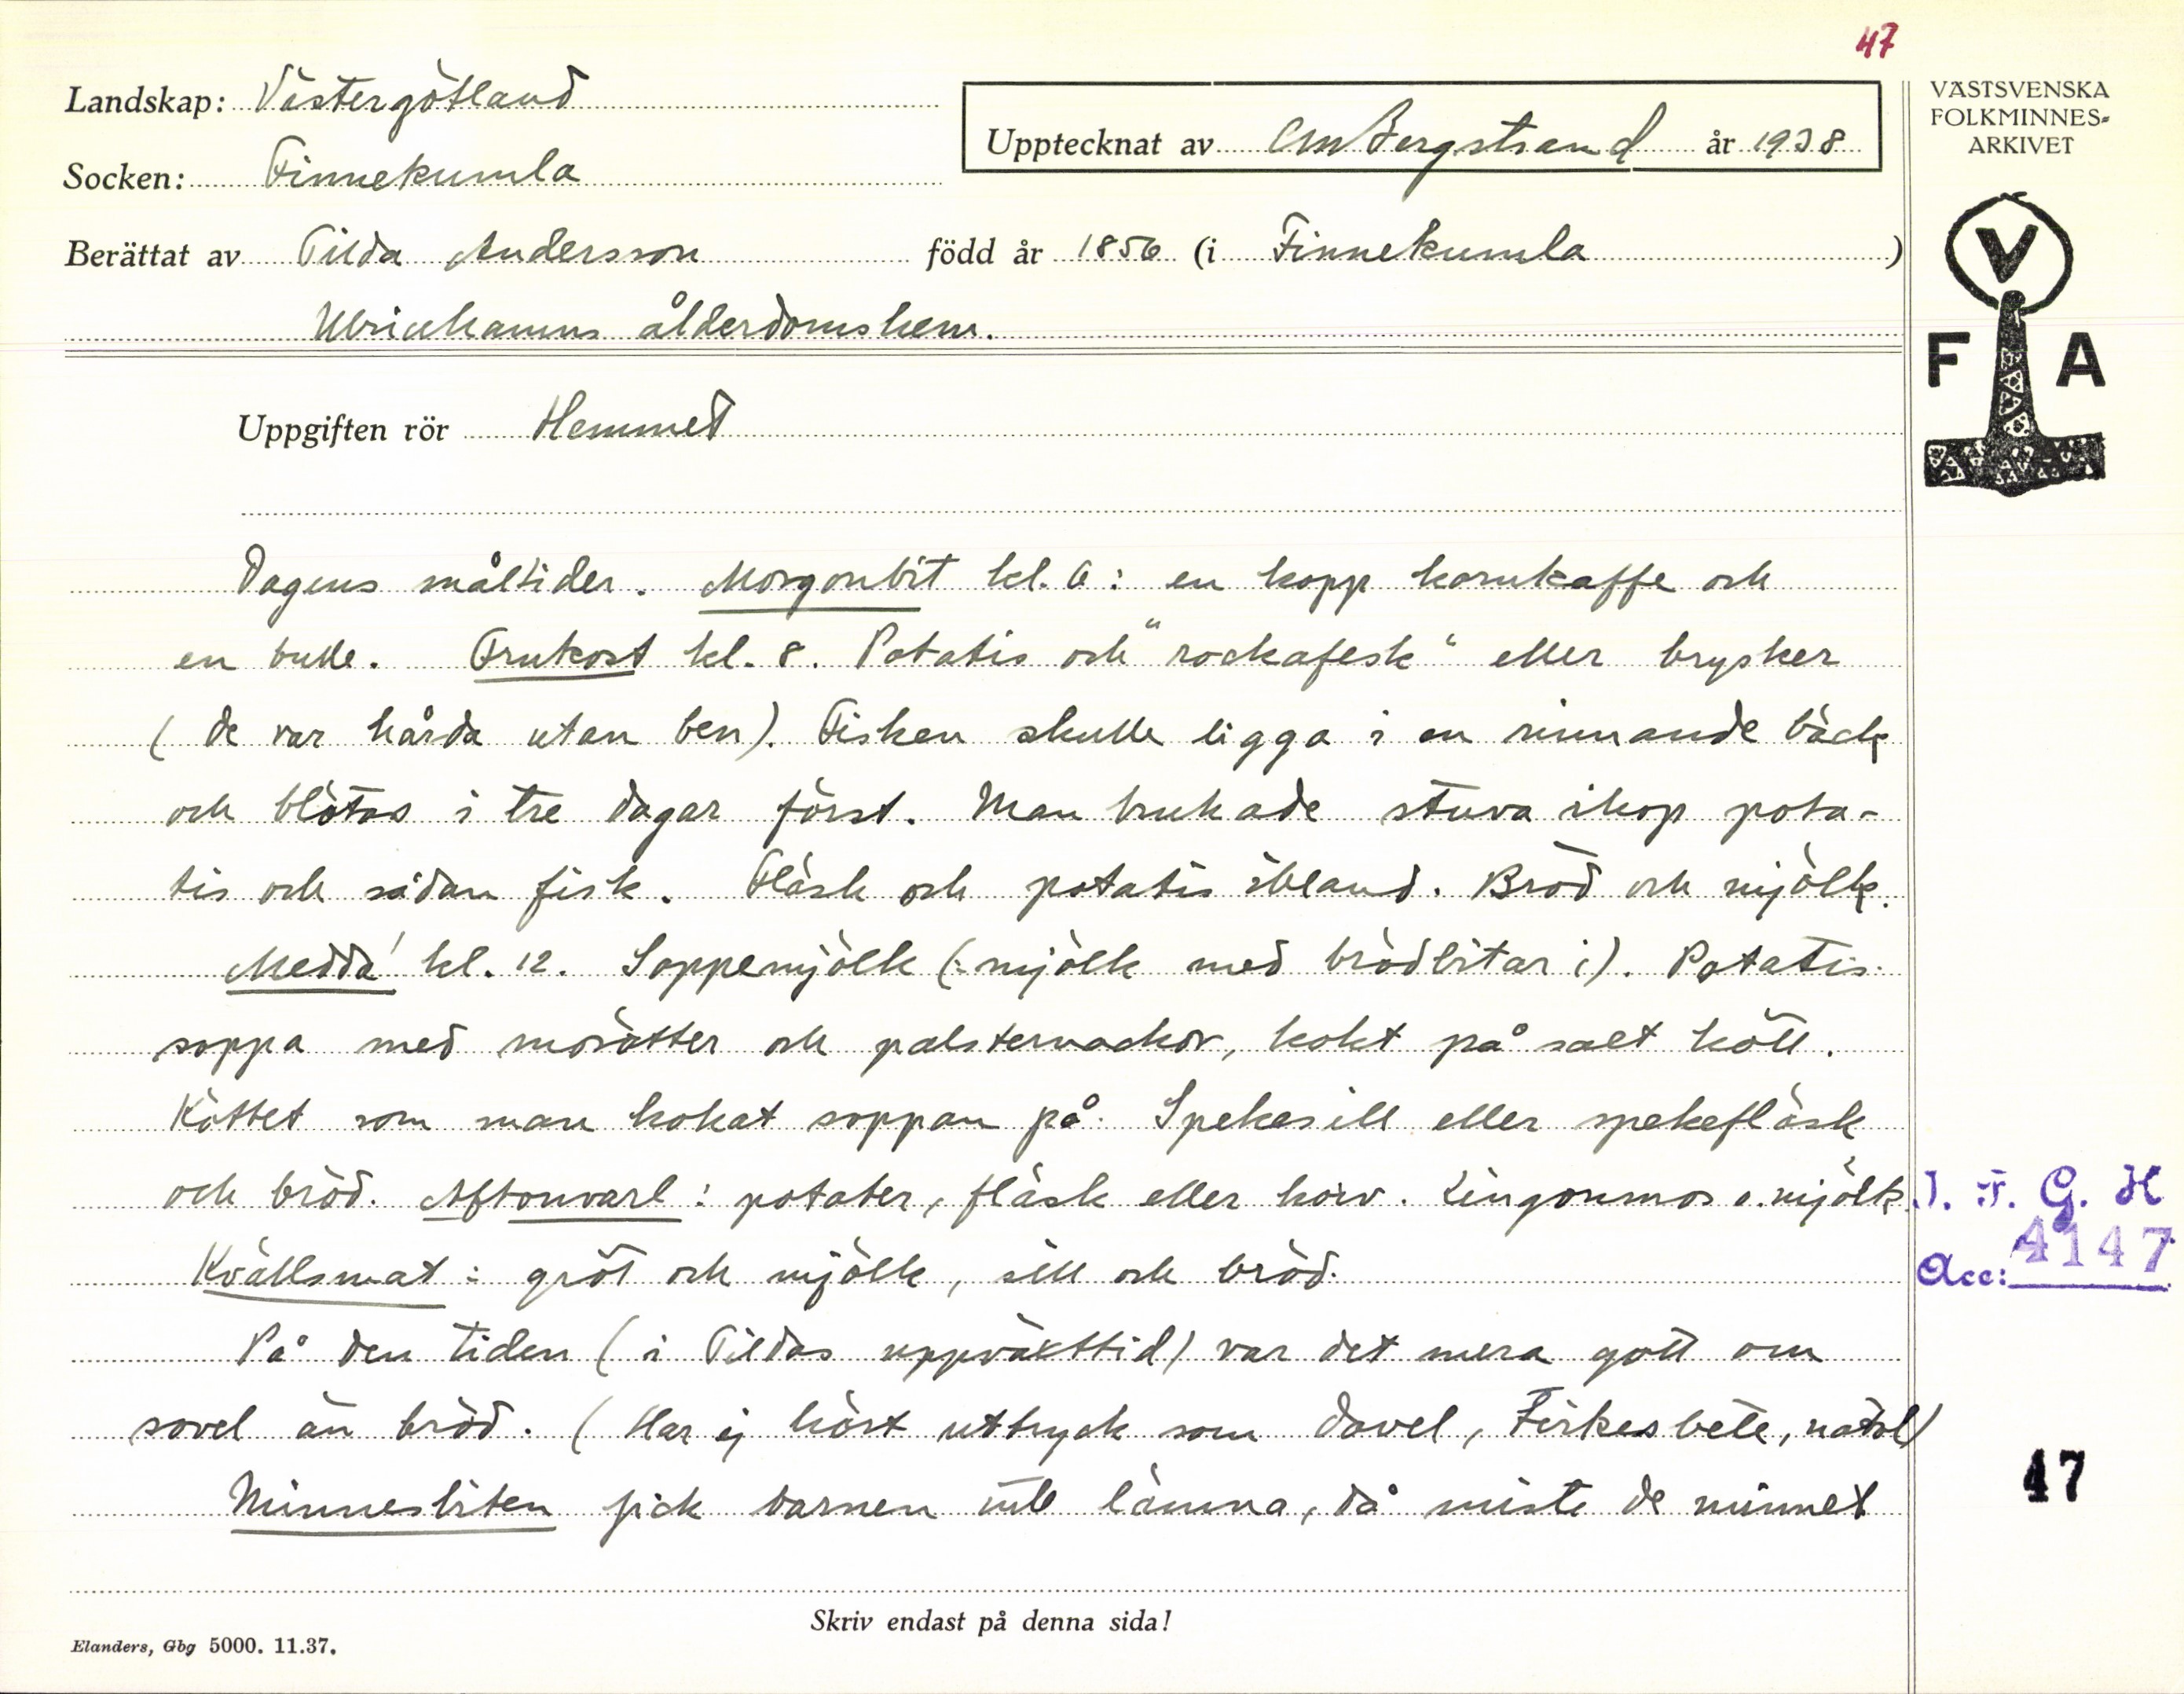 47
Landskap: Västergötland
Socken: Finnekumla
Upptecknat av CM Bergstrand år 1938
VÄSTSVENSKA
FOLKMINNES=
ARKIVET
V
F A
Berättat av Tilda Andersson född år 1856 (i Finnekumla )
Ulricehamns ålderdomshem.
Uppgiften rör Hemmet
Dagens måltider. Morgonbit kl. 6: en kopp kornkaffe och
en bulle. Frukost kl. 8. Potatis och "rockafesk" eller brysker
(de var hårda utan ben). Fisken skulle ligga i en rinnande bäck
och blötas i tre dagar först. Man brukade stuva ihop pota-
tis och sådan fisk. Fläsk och potatis ibland. Bröd och mjölk.
Medda' kl. 12. Soppemjölk (: mjölk med brödbitar i). Potatis-
soppa med morötter och palsternackor, kokt på salt kött.
Köttet som man kokat soppan på. Spekesill eller spekefläsk
och bröd. Aftonvarl: potater, fläsk eller korv. Lingonmos o. mjölk.
Kvällsmat: gröt och mjölk, sill och bröd.
På den tiden (i Tildas uppväxttid) var det mera gott om
sovel än bröd. (Har ej hört uttryck som davel,
Minnesbiten fick barnen inte lämna, då miste de minnet
I. F. G. H
Acc: 4147
47
Skriv endast på denna sida!
Elanders, Gbg 5000. 11.37.